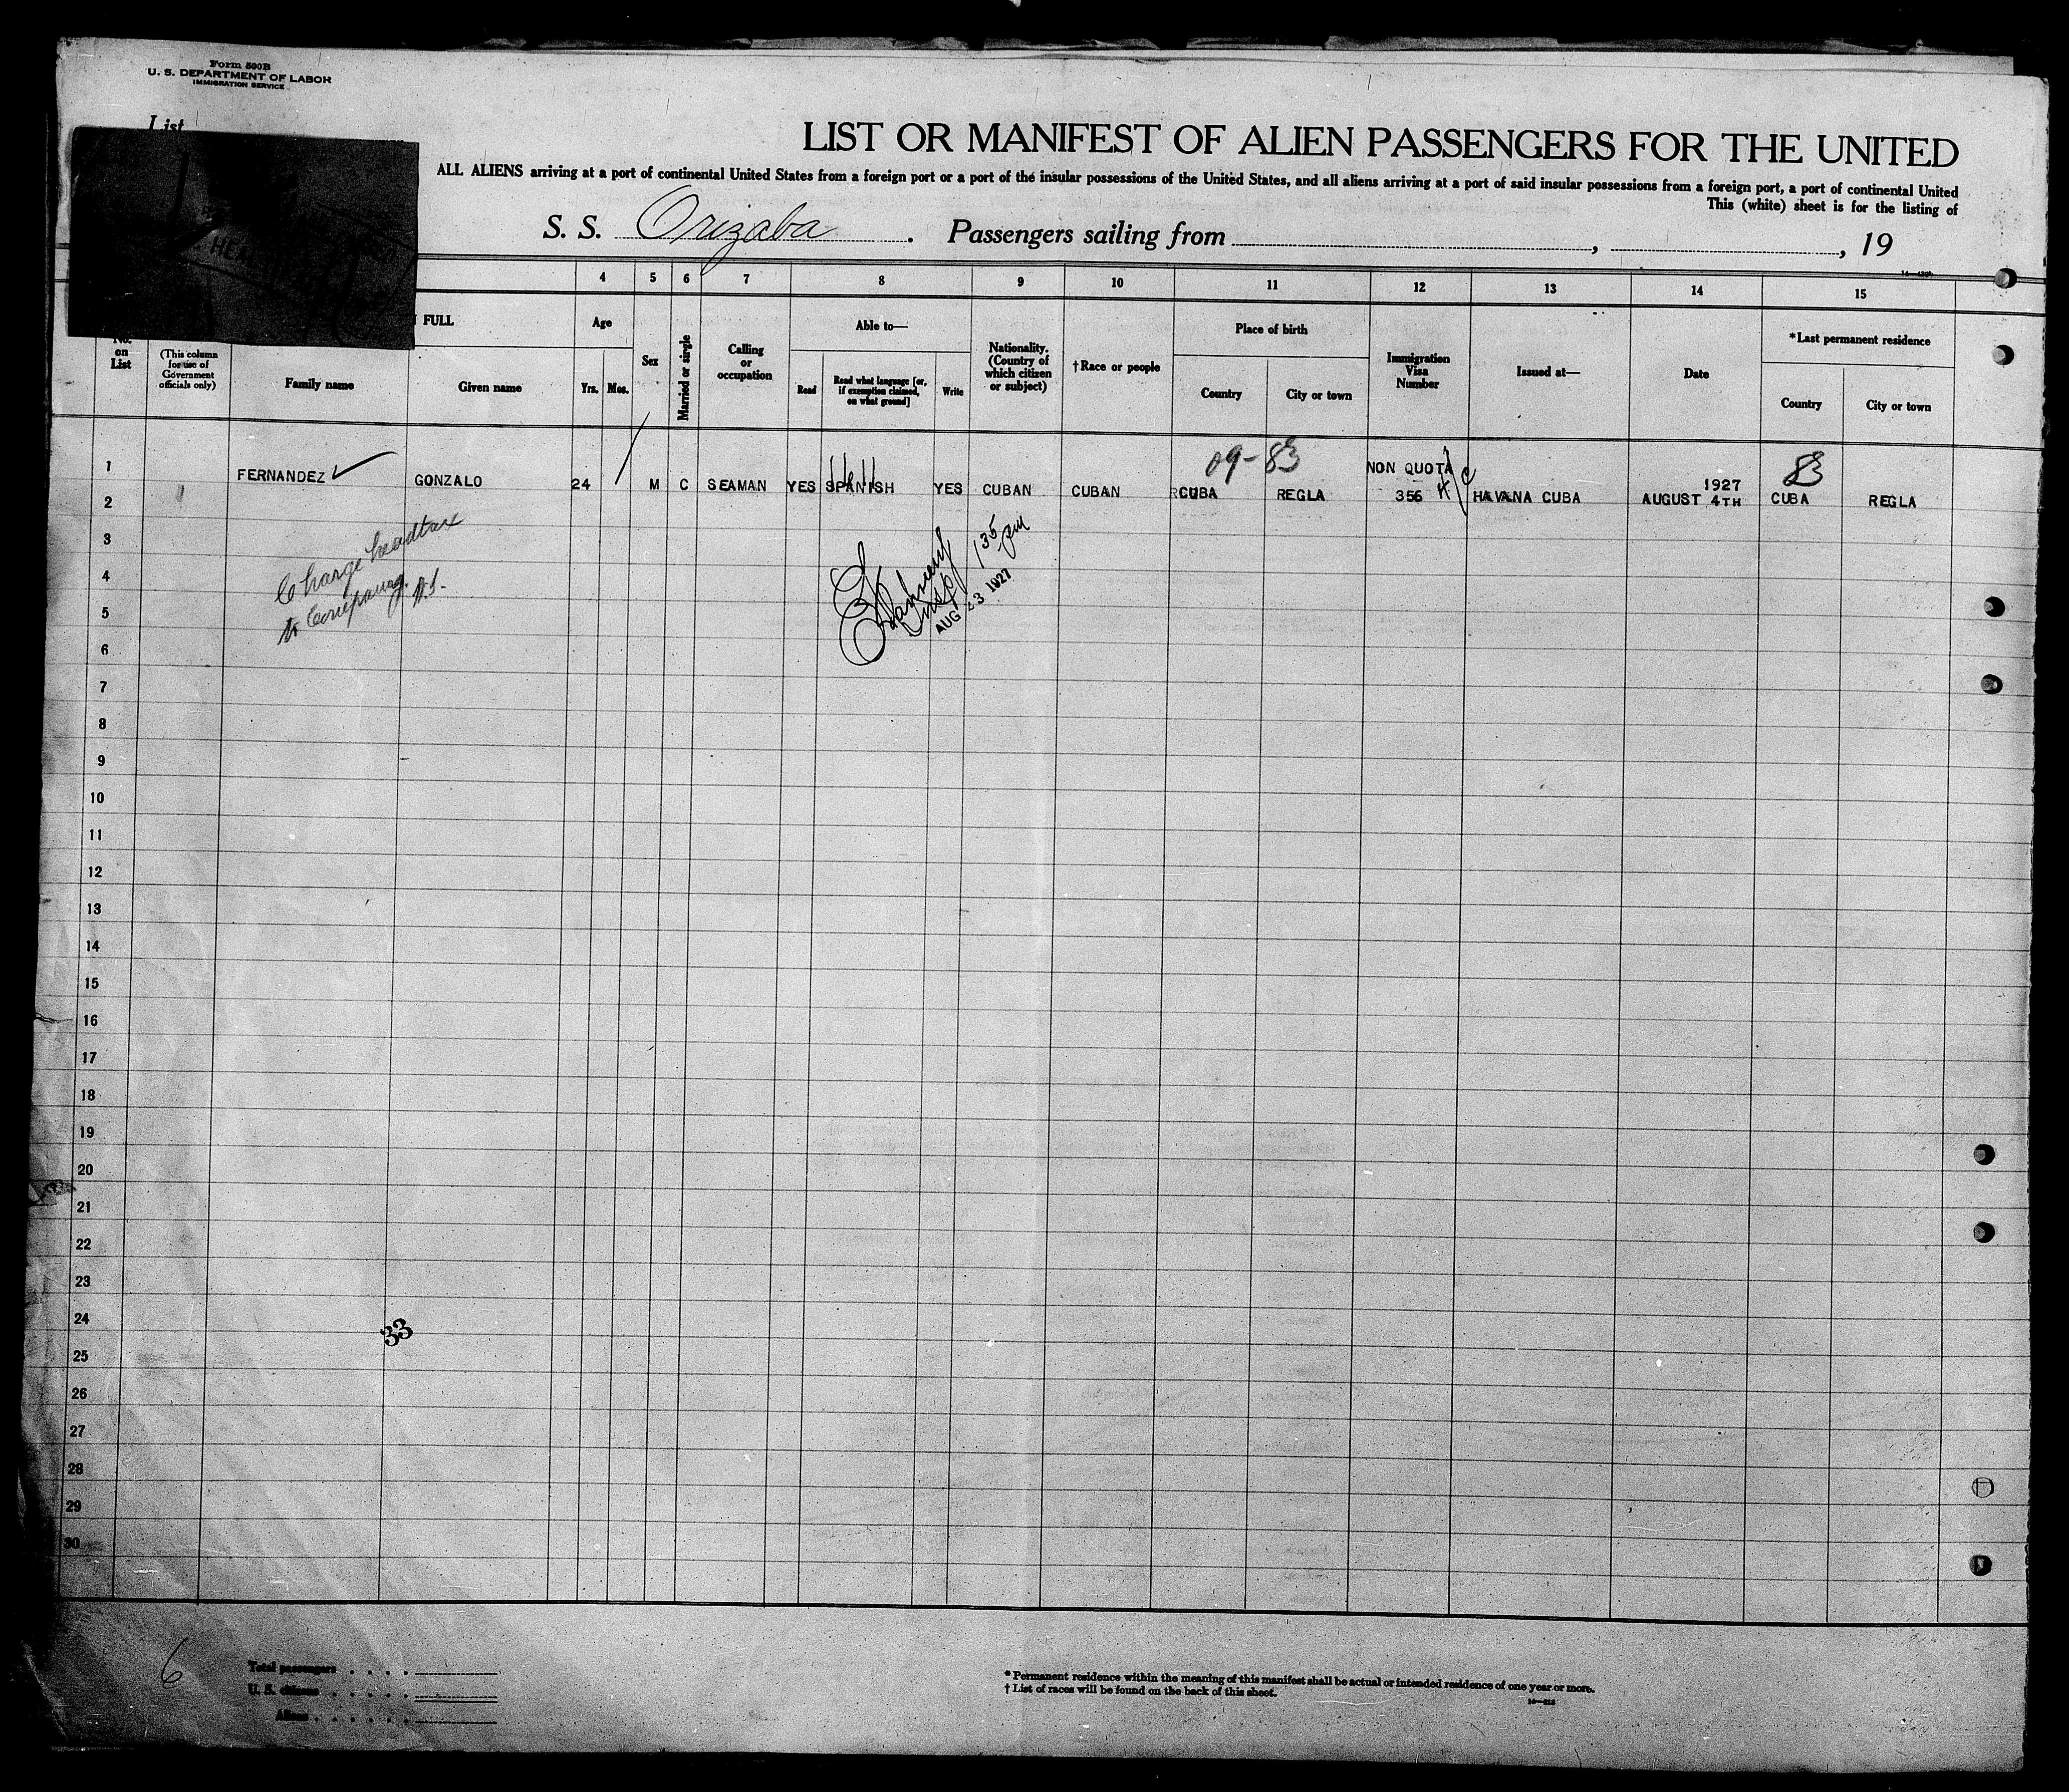 Form 500B
U. S. DEPARTMENT OF LABOR
IMMIGRATION SERVICE
List
LIST OR MANIFEST OF ALIEN PASSENGERS FOR THE UNITED
ALL ALIENS arriving at a port of continental United States from a foreign port or a port of the insular possessions of the United States, and all aliens arriving at a port of said insular possessions from a foreign port, a port of continental United
This (white) sheet is for the listing of
S. S. Orizaba. Passengers sailing from , , 19
4 5 6 7 8 9 10 11 12 13 14 15
FULL Age Sex Married or single Calling or occupation Able to— Nationality. (Country of which citizen or subject) †Race or people Place of birth Immigration Visa Number Issued at— Date *Last permanent residence
No. on List (This column for use of Government officials only) Family name Given name Yrs. Mos. Read Read what language [or, if exemption claimed, on what ground] Write Country City or town Country City or town
09-83 NON QUOTA 1927 83
1 FERNANDEZ GONZALO 24 M C SEAMAN YES SPANISH YES CUBAN CUBAN CUBA REGLA 356 HAVANA CUBA AUGUST 4TH CUBA REGLA
2
3
Charge headtax
4
to Company.
1 35 pm
Insp
AUG 23 1927
5
6
7
8
9
10
11
12
13
14
15
16
17
18
19
20
21
22
23
24
33
25
26
27
28
29
30
6
Total passengers
U. S. citizens
Aliens
* Permanent residence within the meaning of this manifest shall be actual or intended residence of one year or more.
† List of races will be found on the back of this sheet.